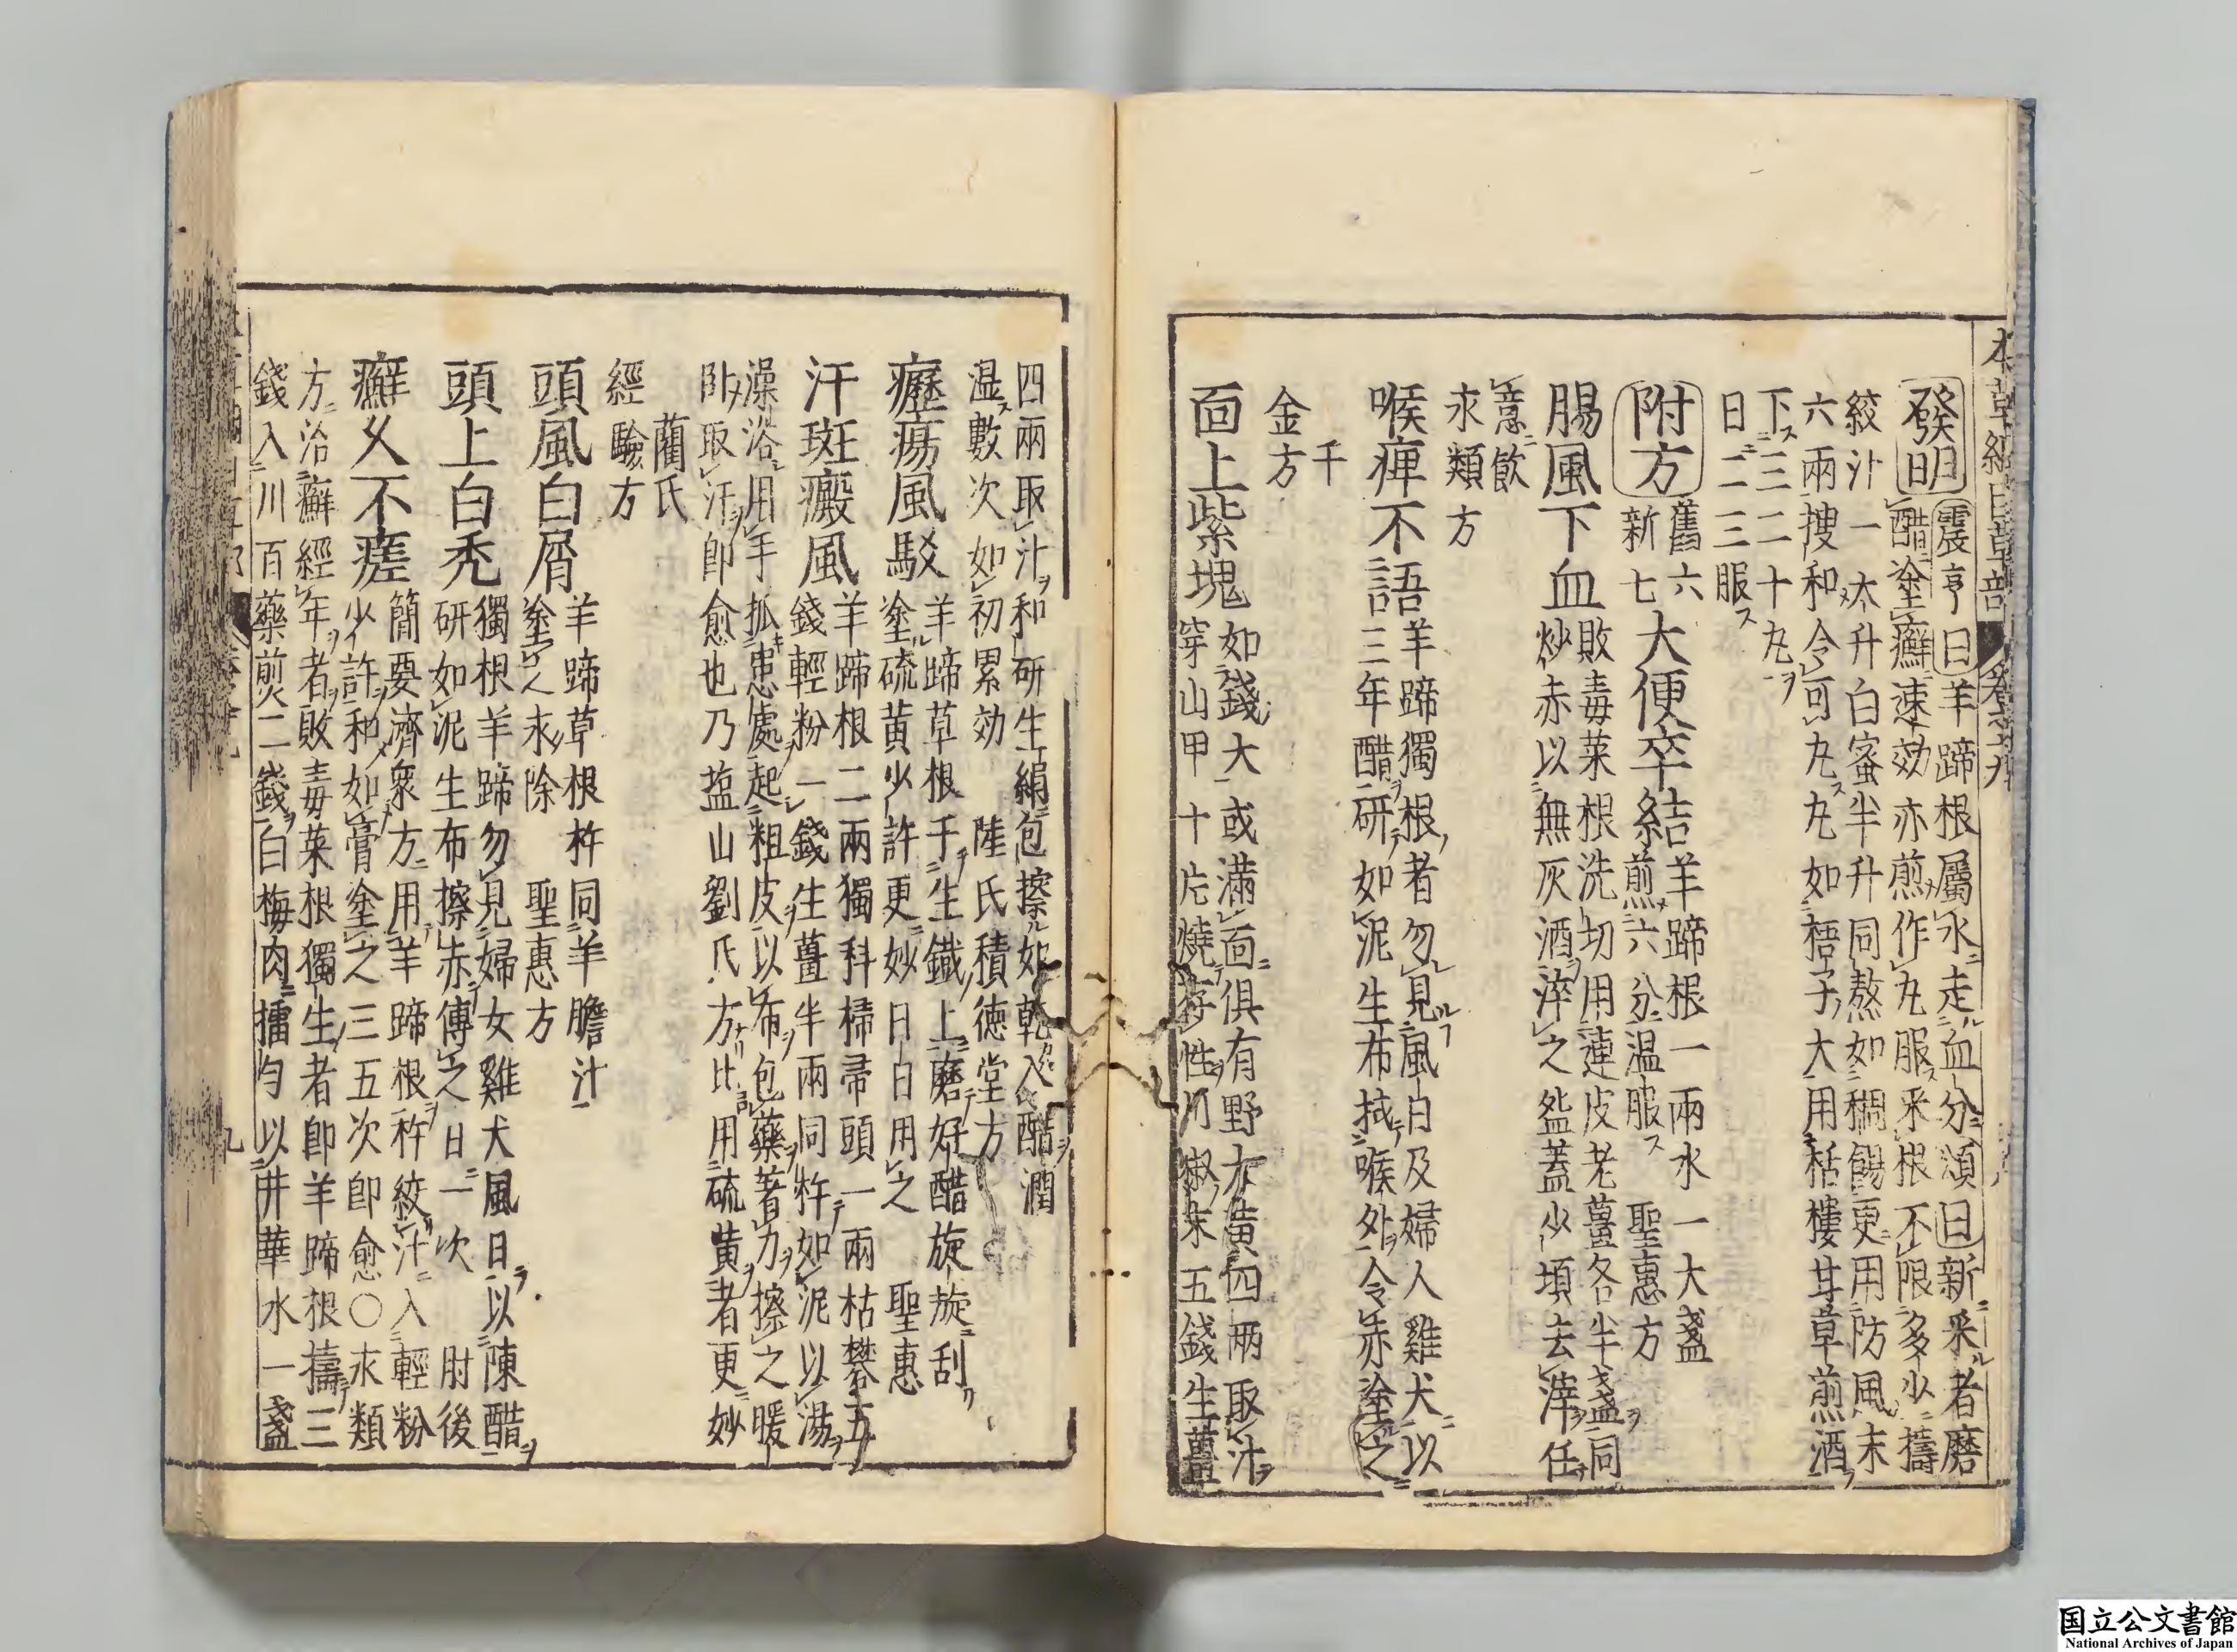 本草綱目草部 卷之十九
發明
震亨曰羊蹄根屬水走血分頌曰新采者磨
醋塗癬速効亦煎作丸服采根不限多少擣
絞汁一大升白蜜半升同熬如稠餳更用防風末
六兩搜和令可丸丸如梧子大用栝樓甘草煎酒
下三二十丸
日二三服
附方
舊六
新七
大便卒結
羊蹄根一兩水一大盞
煎六分温服 聖惠方
腸風下血
敗毒菜根洗切用連皮老薑各半盞同
炒赤以無灰酒淬之盌蓋少頃去滓任
意飲
永類方
喉痺不語
羊蹄獨根者勿見風日及婦人雞犬以
三年醋研如泥生布拭喉外令赤塗之
千
金方
面上紫塊
如錢大或滿面俱有野大黄四兩取汁
穿山甲十片燒存性川椒末五錢生薑
四兩取汁和研生絹包擦如乾入醋潤
温數次如初累効 陸氏積德堂方
癧瘍風駁
羊蹄草根于生鐵上磨好醋旋旋刮
塗硫黄少許更妙日日用之 聖惠
汗斑癜風
羊蹄根二兩獨科掃帚頭一兩枯礬五
錢輕粉一錢生薑半兩同杵如泥以湯
澡浴用手抓患處起粗皮以布包藥著力擦之暖
卧取汗卽愈也乃塩山劉氏方比用硫黄者更妙
藺氏
經驗方
頭風白屑
羊蹄草根杵同羊膽汁
塗之永除 聖惠方
頭上白秃
獨根羊蹄勿見婦女雞犬風日以陳醋
研如泥生布擦赤傅之日一次 肘後
癬久不瘥
簡要濟衆方用羊蹄根杵絞汁入輕粉
少許和如膏塗之三五次卽愈○永類
方治癬經年者敗毒菜根獨生者卽羊蹄根擣三
錢入川百藥煎二錢白梅肉擂勻以井華水一盞
九
国立公文書館
National Archives of Japan